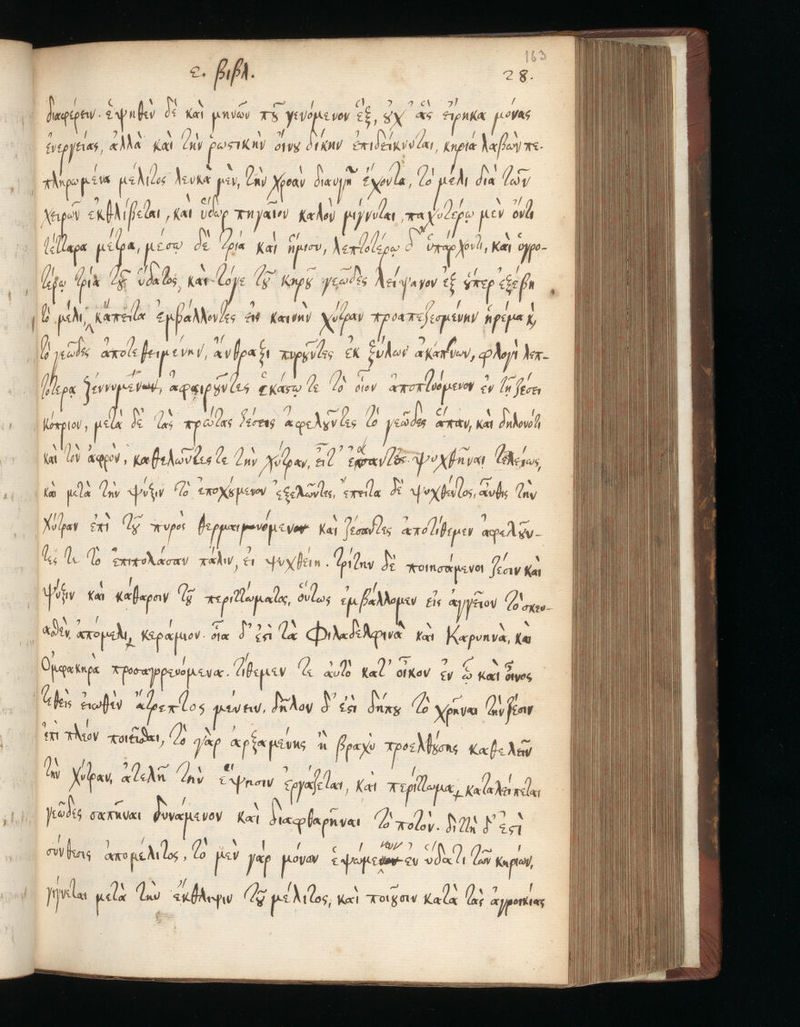 163
ε. βιβλ.
28.
διαφέρειν. ἑψηθὲν δὲ καὶ μηνῶν που γενόμενον ἓξ, οὐχ' ἃς εἴρηκα μόνας
ἐνεργείας, ἀλλὰ καὶ τὴν ῥωστικὴν οἴνου δίκην ἐπιδείκνυται, κηρία λαβὼν πε-
πληρωμένα μέλιτος λευκὰ μὲν, τὴν χροὰν διαυγῆ ἔχοντα, τὸ μέλι διὰ τῶν
χειρῶν ἐκθλίβεται, καὶ ὕδωρ πηγαῖον καλὸν μίγνυται, παχυτέρῳ μὲν ὄντι
τέτταρα μέτρα, μέσῳ δὲ τρία καὶ ἥμισυ, λεπτοτέρῳ δ' ὑπάρχοντι, καὶ ὑγρο-
τέρῳ τρία τοῦ ὕδατος, καὶ τόγε τοῦ κηροῦ γεῶδες λείψανον ἐξ οὗπερ ἐξέβη
τὸ μέλι, κἄπειτα ἐμβάλλοντες εἰς καινὴν χύτραν προαπεζεσμένην ἠρέμα καὶ
τὸ γεῶδες ἀποτεθειμένην, ἄνθραξι πυροῦντες ἐκ ξύλων ἀκάπνων, φλογὶ λεπ-
τοτέρᾳ ἀφαιροῦντες ἑκάστῳ τε τὸ οἷον ἀποπτυόμενον ἐν τῇ ζέσει
κόπριον, μετὰ δὲ τὰς πρώτας ζέσεις ἀφελοῦντες τὸ γεῶδες ἅπαν, καὶ δηλονότι
καὶ τὸν ἀφρὸν, καθελῶντες τε τὴν χύτραν, εἶτ' ἐάσαντες ψυχθῆναι τελείως,
καὶ μετὰ τὴν ψύξιν τὸ ἐποχούμενον ἐξελῶντες, ἔπειτα δὲ ψυχθέντος, αὖθις τὴν
χύτραν ἐπὶ τοῦ πυρὸς θερμαινόμενον καὶ ζέσαντες ἀποτίθεμεν ἀφελοῦν-
τες τε τὸ ἐπιπολάσαν πάλιν, εἰ ψυχθείη. τρίτην δὲ ποιησάμενοι ζέσιν καὶ
ψύξιν καὶ κάθαρσιν τοῦ περιττώματος, οὕτως ἐμβάλλομεν εἰς ἀγγεῖον τὸ σκευ-
ασθὲν ἀπόμελι, κεράμιον. οἷα δ' ἐστὶ τὰ Φιλαδελφινὰ καὶ Καρυηνὰ, καὶ
Ὀμφακηρὰ προσαγορευόμενα. τίθεμεν τε ἀυτὸ κατ' οἶκον ἐν ᾧ καὶ οἶνος
τεθεὶς εἰωθὲν ἄτρεπτος μένειν. δῆλον δ' ἐστὶ δήπου τὸ χρῆναι τὴν ζέσιν
ἐπὶ πλέον ποιεῖσθαι, τὸ γὰρ ἀρξαμένης ἢ βραχὺ προελθούσης καθελεῖν
τὴν χύτραν, ἀτελῆ τὴν ἕψησιν ἐργάζεται, καὶ περίττωμα καταλείπεται
γεῶδες σαπῆναι δυνάμενον καὶ διαφθαρῆναι τὸ ποτόν. διττὴ δ' ἐστὶ
σύνθεσις ἀπομέλιτος, τὸ μὲν γὰρ μόνον ἑψωμένων ἐν ὕδατι τῶν κηρίων,
γίγνεται μετὰ τὴν ἔκθλιψιν τοῦ μέλιτος, καὶ ποιοῦσιν κατὰ τὰς ἀγροικίας